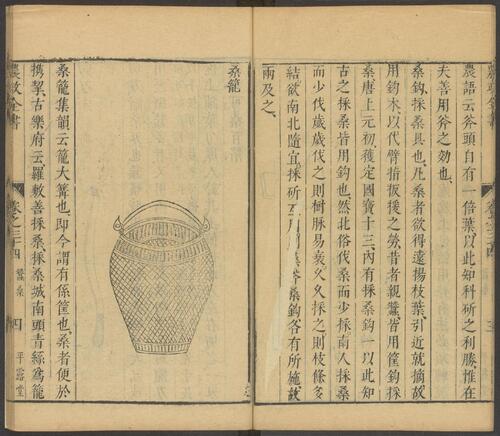 農政全書 卷之三十四 三
農語云斧頭自有一倍葉以此知科斫之利勝惟在
夫善用斧之効也
桑鈎採桑具也凡桑者欲得遠揚枝葉引近就摘故
用鈎木以代臂指扳援之勞昔者親蠶皆用筐鈎採
桑唐上元初獲定國寶十三內有採桑鈎一以此知
古之採桑皆用鈎也然北俗伐桑而少採南人採桑
而少伐歲歲伐之則樹脉易衰久久採之則枝條多
結欲南北隨宜採斫互用則桑斧桑鈎各有所施故
兩及之
桑籠
桑籠集韻云籠大篝也即今謂有係筐也桑者便於
攜挈古樂府云羅敷善採桑採桑城南頭青絲爲籠
農政全書 卷之三十四 蠶桑 四 平露堂